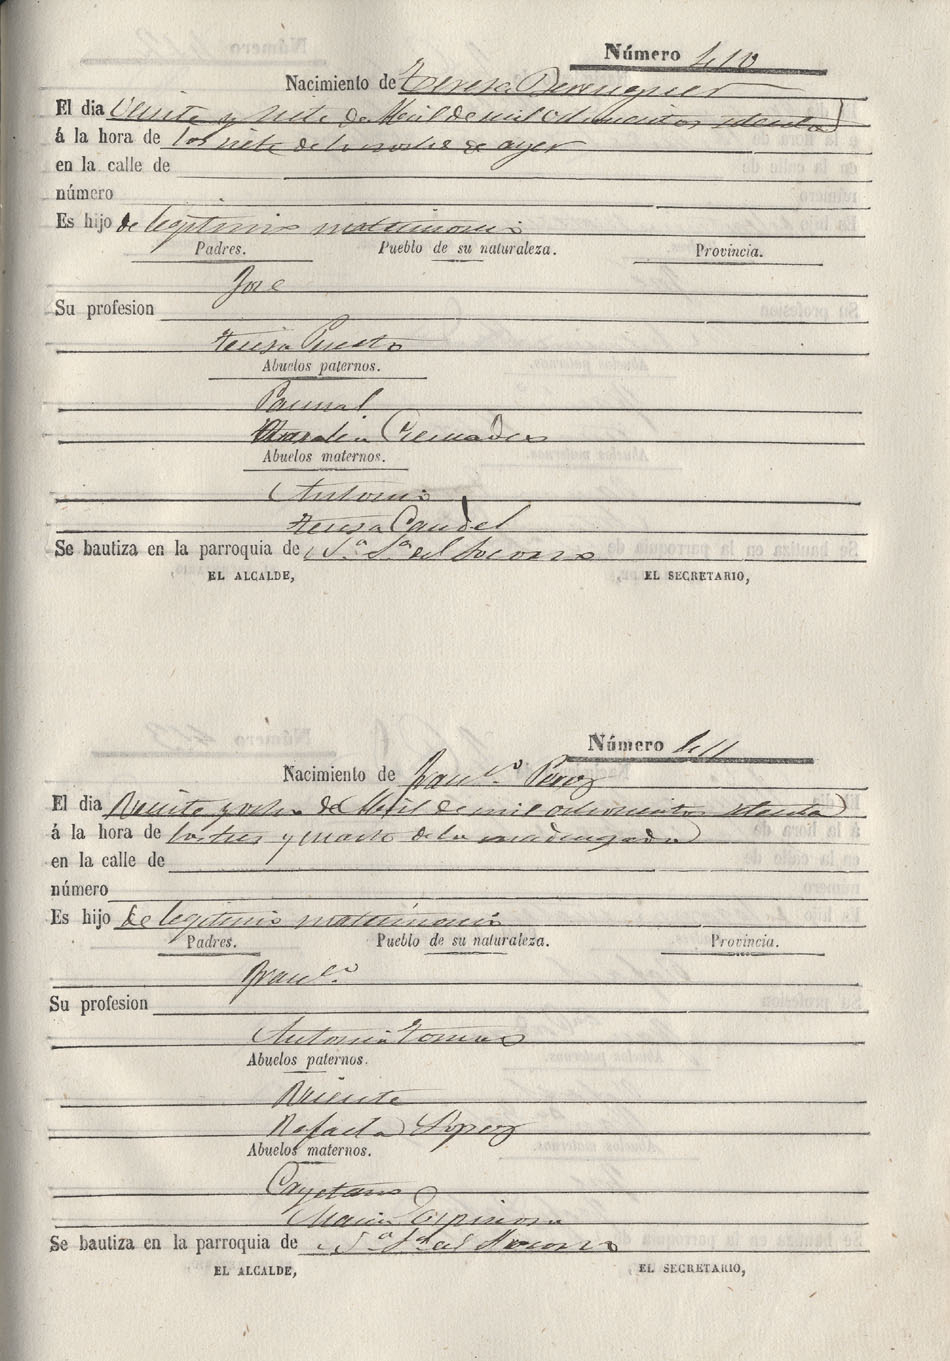 Número 410
Nacimiento de Teresa Berenguer
El dia veinte y siete de Abril de mil ochocientos setenta
á la hora de las siete de la noche de ayer
en la calle de
número
Es hijo de legitimo matrimonio
Padres. Pueblo de su naturaleza. Provincia.
José
Su profesion
Teresa Puerto
Abuelos paternos.
Pascual
Cremades
Abuelos maternos.
Antonio
Teresa Candel
Se bautiza en la parroquia de N. S.ª del Socorro
EL ALCALDE, EL SECRETARIO,
Número 411
Nacimiento de Fran.co Perez
El dia veinte y ocho de Abril de mil ochocientos setenta
á la hora de las tres y cuarto de la madrugada
en la calle de
número
Es hijo de legitimo matrimonio
Padres. Pueblo de su naturaleza. Provincia.
Fran.co
Su profesion
Antonia Tomas
Abuelos paternos.
Vicente
Rafaela Lopez
Abuelos maternos.
Cayetano
Maria Espinosa
Se bautiza en la parroquia de N. S.ª del Socorro
EL ALCALDE, EL SECRETARIO,